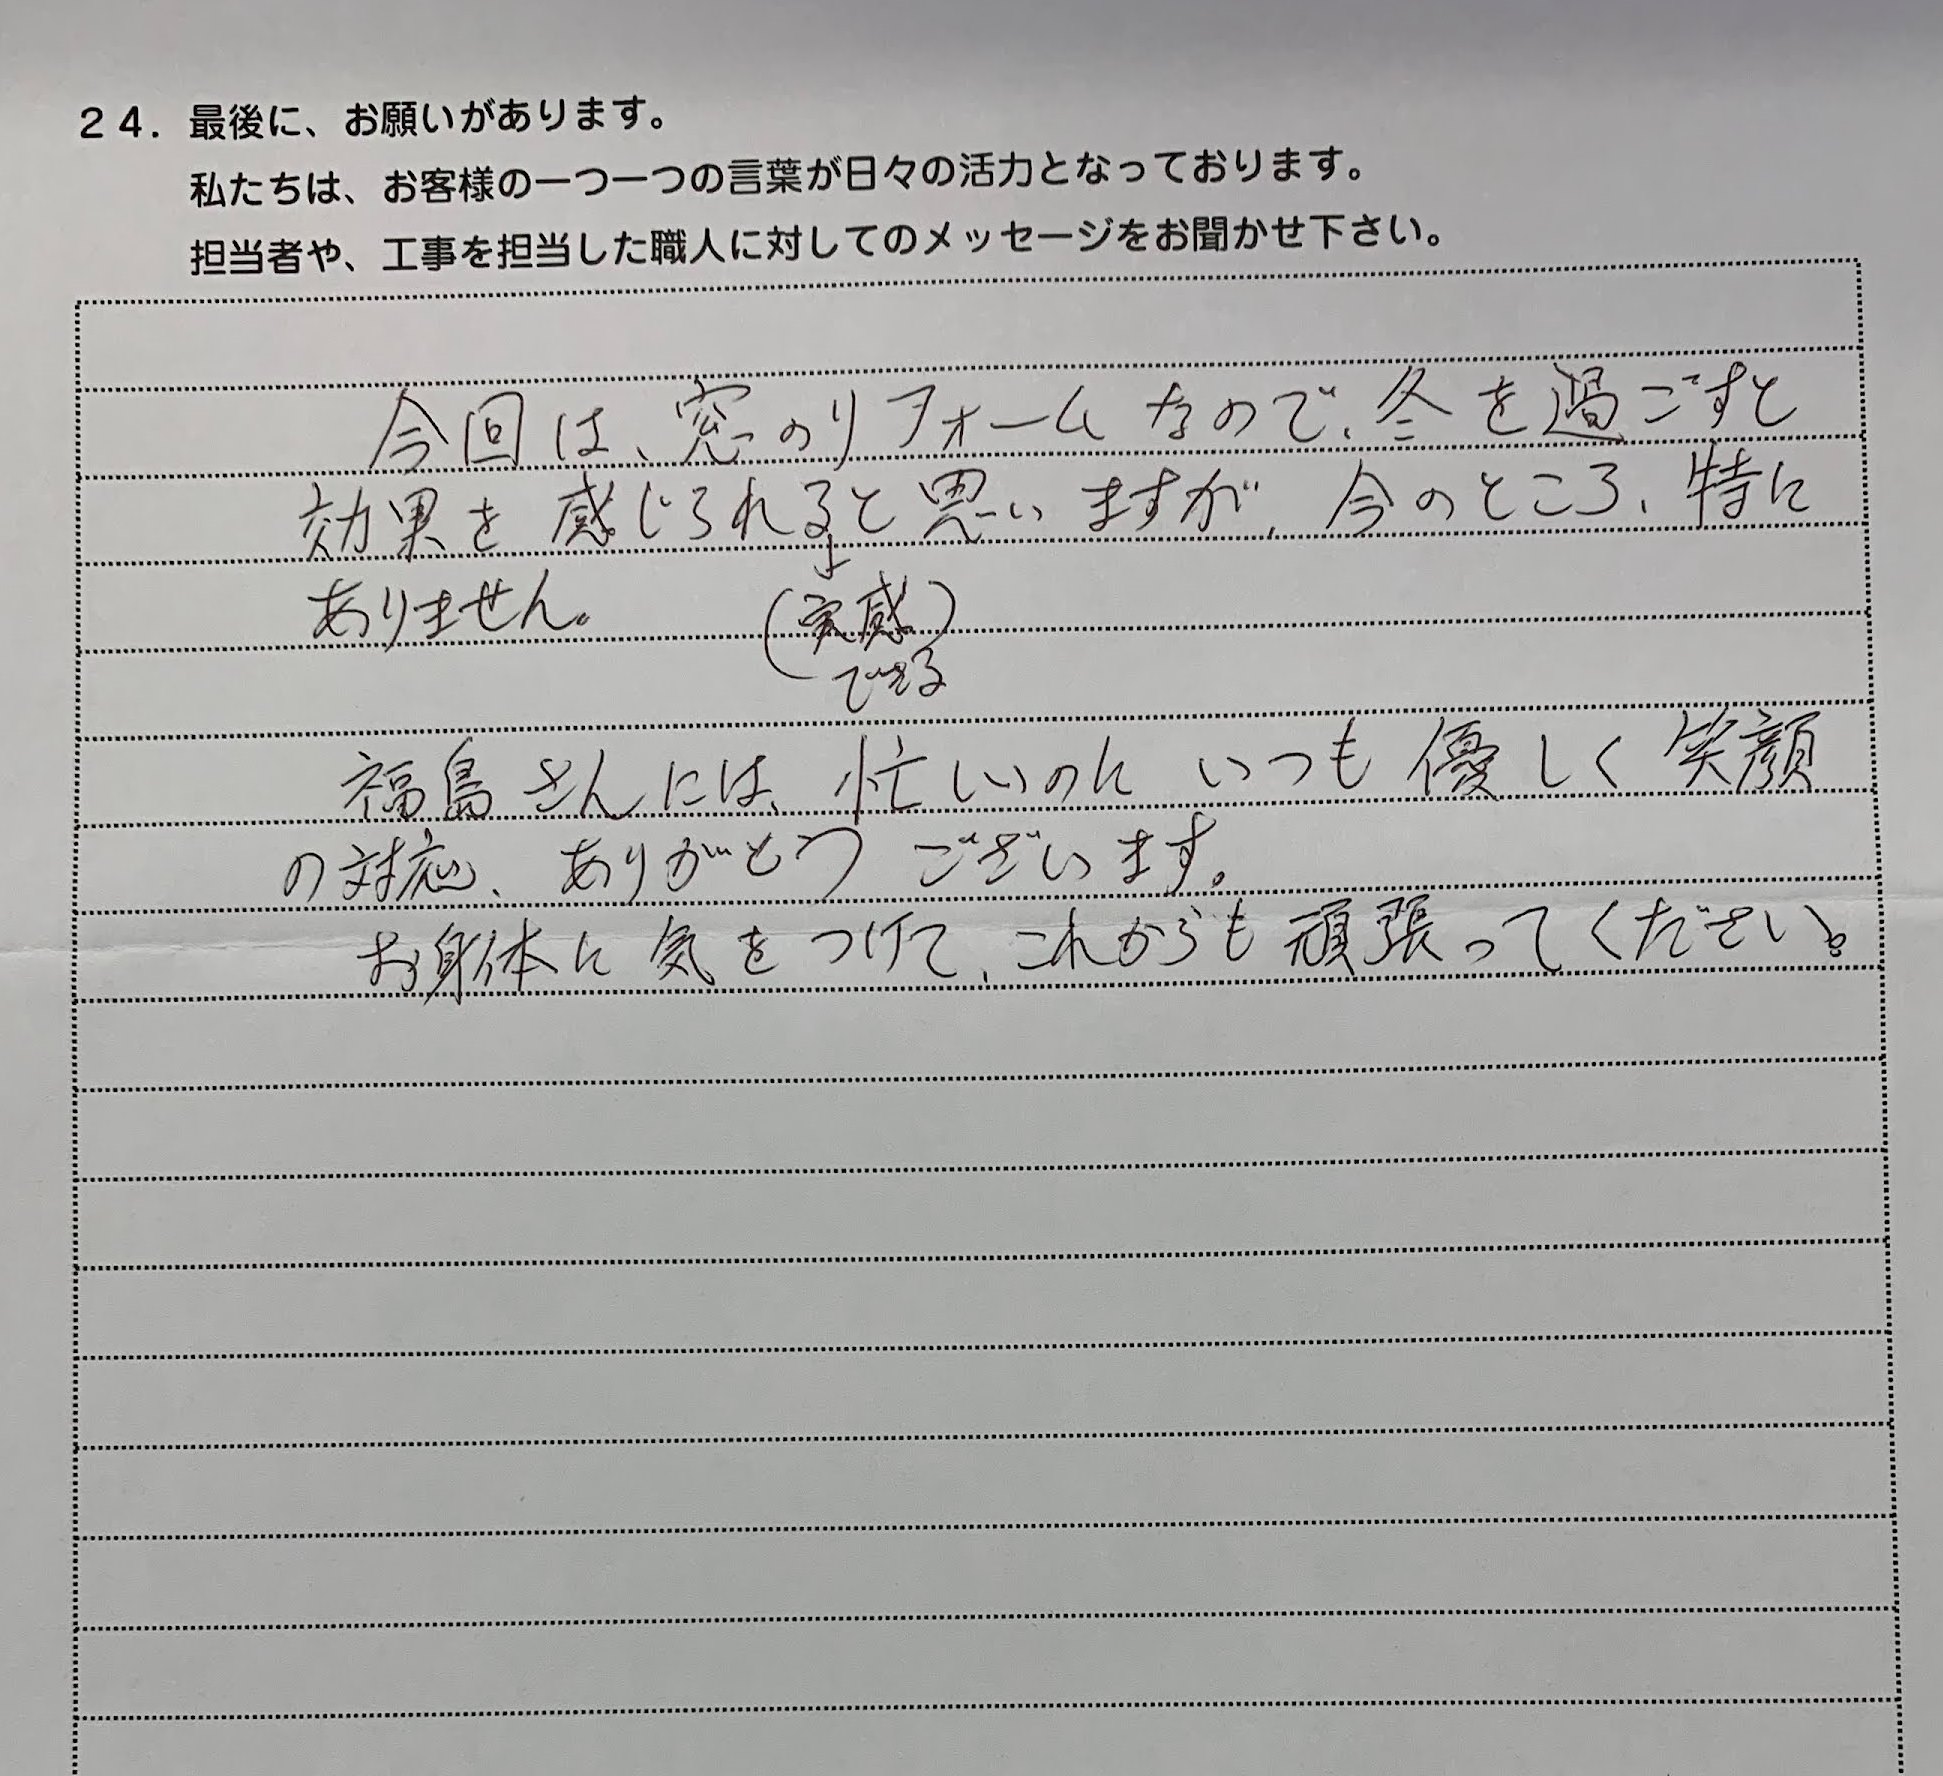 24. 最後に、お願いがあります。
私たちは、お客様の一つ一つの言葉が日々の活力となっております。
担当者や、工事を担当した職人に対してのメッセージをお聞かせ下さい。
今回は、窓のリフォームなので、冬を過ごすと
効果を感じられると思いますが、今のところ、特に
ありません。
(実感)
できる
福島さんには、忙しいのにいつも優しく笑顔
の対応、ありがとうございます。
お身体に気をつけて、これからも頑張ってください。